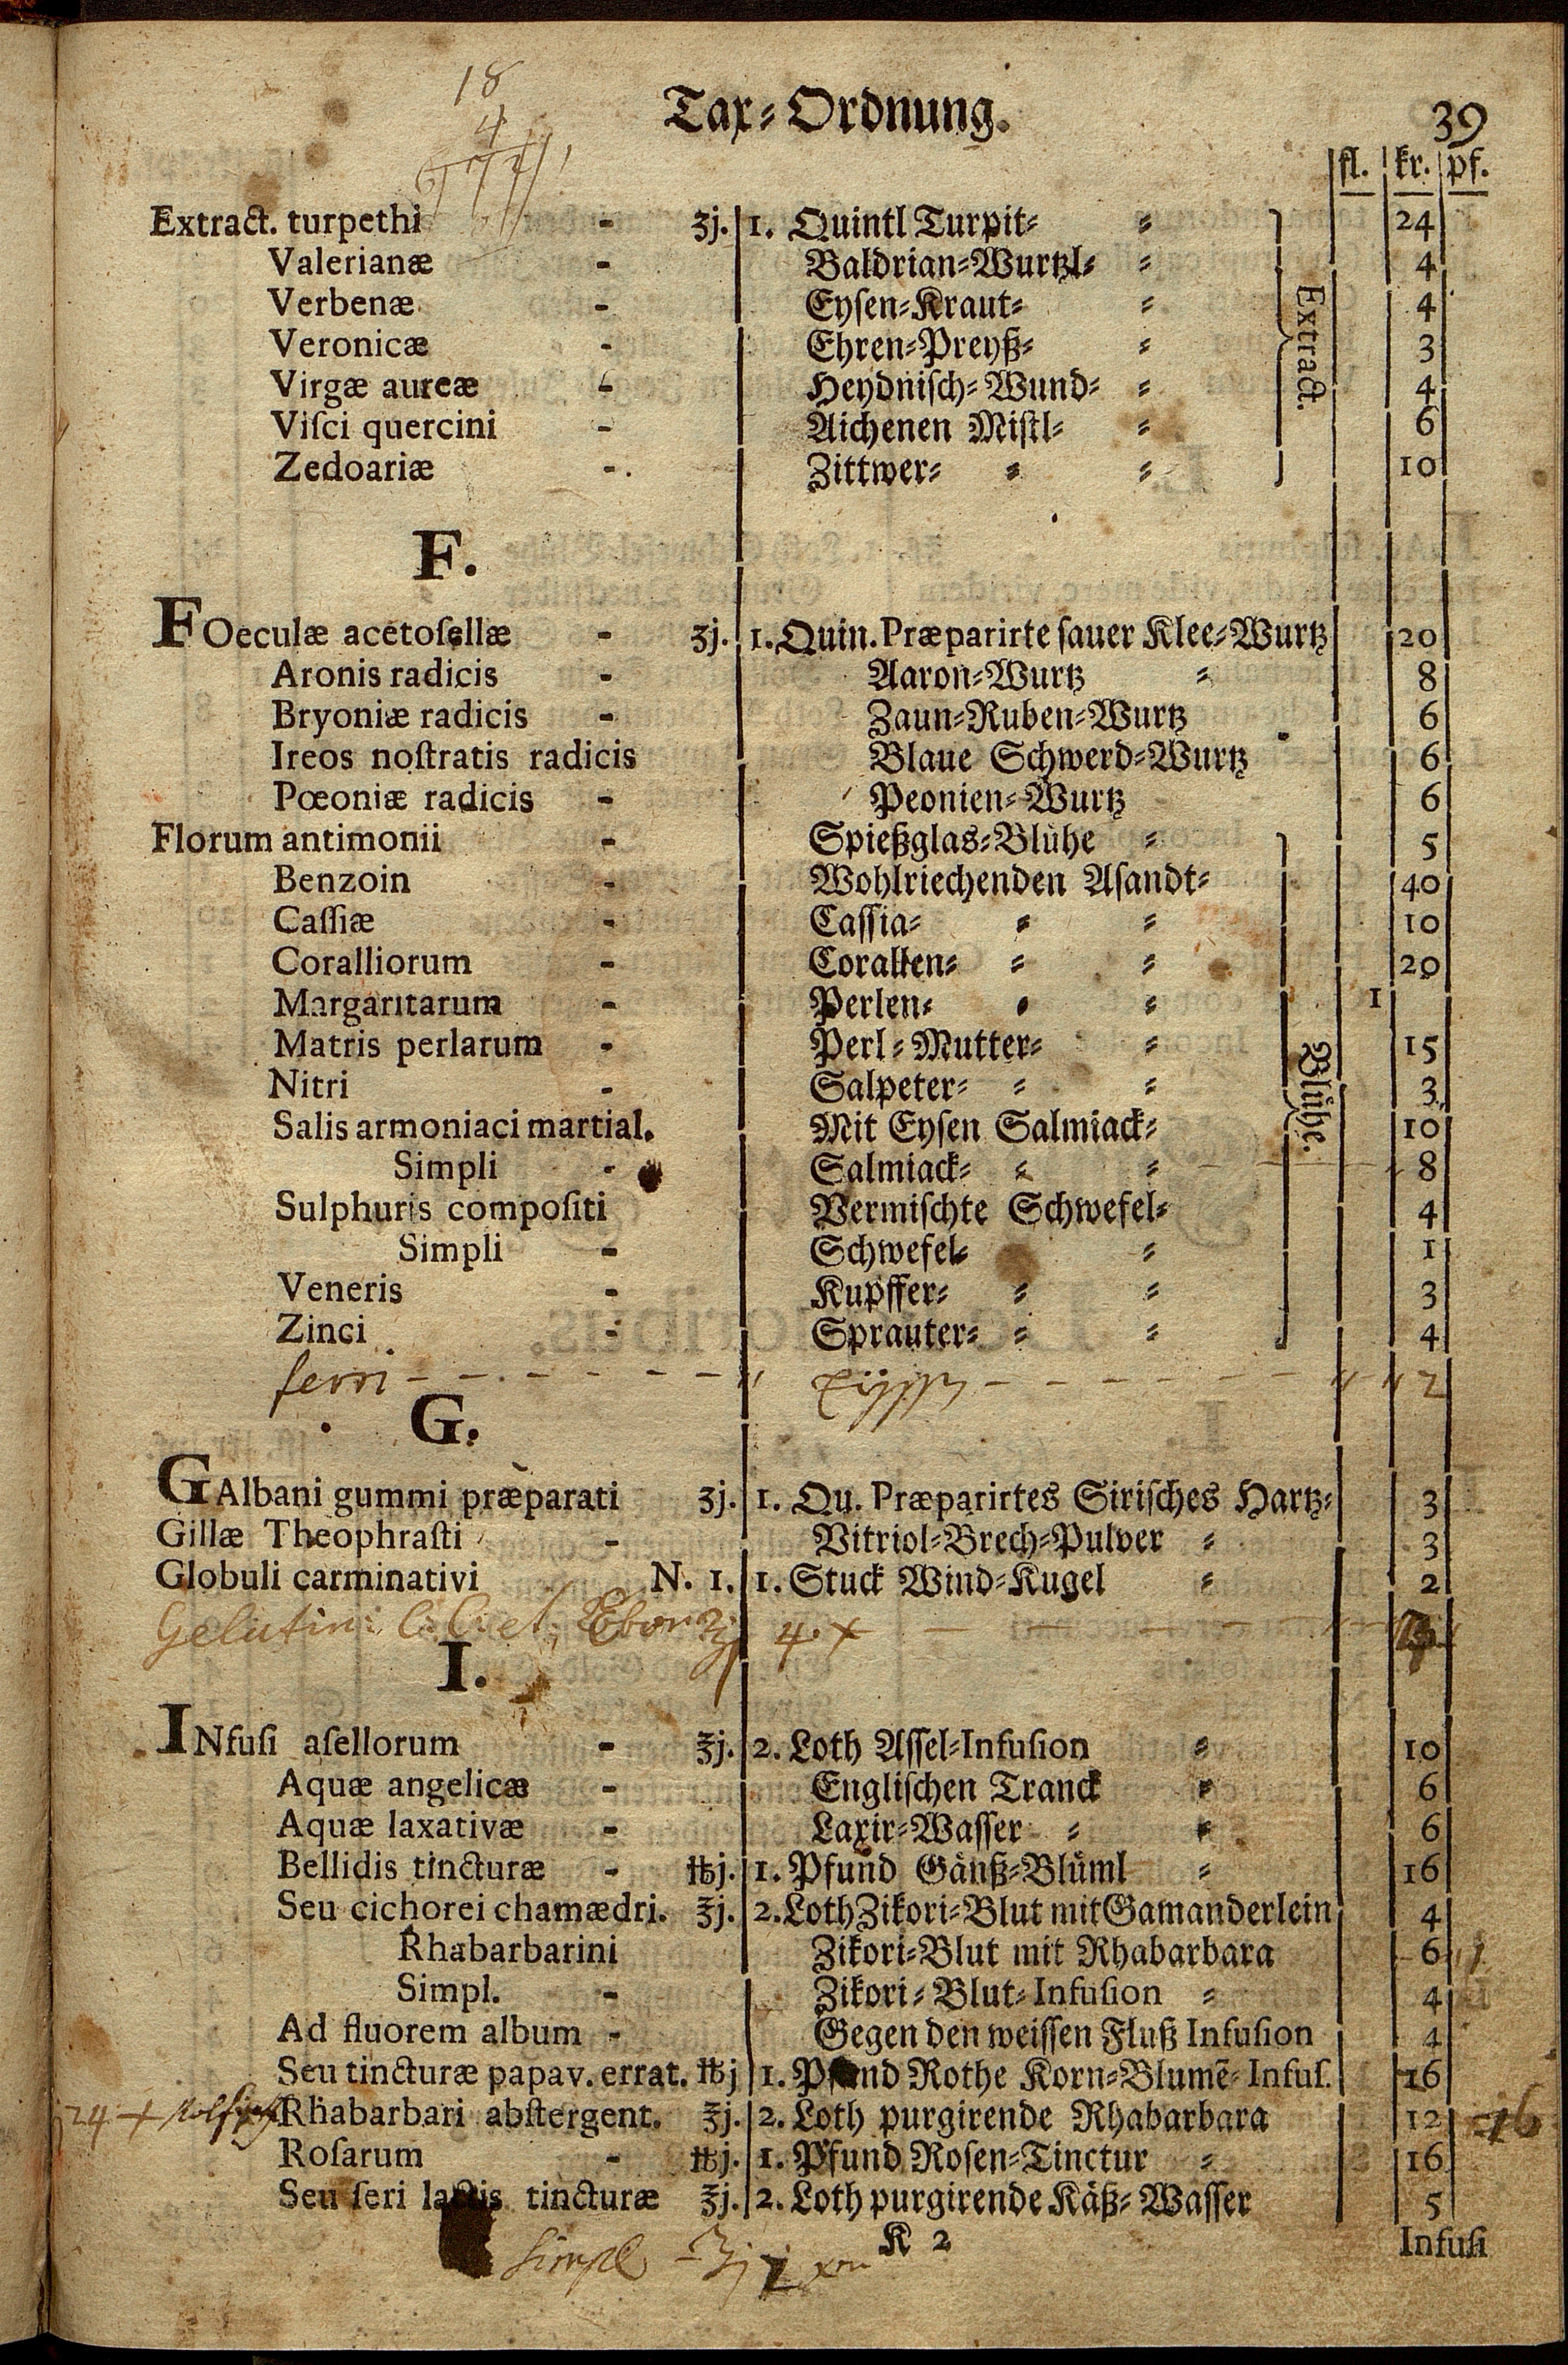 18
4
Tax⸗Ordnung.
39
fl. kr. pf.
Extract. turpethi - ʒj. 1. Quintl Turpit⸗ ⸗ 24
Valerianæ - Baldrian⸗Wurtzl⸗ ⸗ 4
Verbenæ - Eysen⸗Kraut⸗ ⸗ 4
Veronicæ - Ehren⸗Preyß⸗ ⸗ 3
Virgæ aureæ - Heydnisch⸗Wund⸗ ⸗ 4
Viſci quercini - Aichenen Mistl⸗ ⸗ 6
Zedoariæ - Zittwer⸗ ⸗ ⸗ 10
Extract.
F.
FOeculæ acetoſellæ - ʒj. 1. Quin. Præparirte sauer Klee⸗Wurtz 20
Aronis radicis - Aaron⸗Wurtz ⸗ 8
Bryoniæ radicis - Zaun⸗Ruben⸗Wurtz 6
Ireos noſtratis radicis Blaue Schwerd⸗Wurtz 6
Pœoniæ radicis - Peonien⸗Wurtz 6
Florum antimonii - Spießglas⸗Blühe ⸗ 5
Benzoin - Wohlriechenden Asandt⸗ 40
Caſſiæ - Cassia⸗ ⸗ ⸗ 10
Coralliorum - Corallen⸗ ⸗ ⸗ 20
Margaritarum - Perlen⸗ ⸗ ⸗ 1
Matris perlarum - Perl⸗Mutter⸗ ⸗ 15
Nitri - Salpeter⸗ ⸗ ⸗ 3
Salis armoniaci martial. Mit Eysen Salmiack⸗ 10
Simpli - Salmiack⸗ ⸗ ⸗ 8
Sulphuris compoſiti Vermischte Schwefel⸗ 4
Simpli - Schwefel⸗ ⸗ 1
Veneris - Kupffer⸗ ⸗ ⸗ 3
Zinci - Sprauter⸗ ⸗ ⸗ 4
Blühe.
ferri 2
G.
GAlbani gummi præparati ʒj. 1. Qu. Præparirtes Sirisches Hartz⸗ 3
Gillæ Theophraſti - Vitriol⸗Brech⸗Pulver ⸗ 3
Globuli carminativi N. 1. 1. Stuck Wind⸗Kugel ⸗ 2
Gelatin: C: C: et Ebor ʒj 4 x
I.
INfuſi aſellorum - ℥j. 2. Loth Assel⸗Infuſion ⸗ 10
Aquæ angelicæ - Englischen Tranck ⸗ 6
Aquæ laxativæ - Laxir⸗Wasser ⸗ ⸗ 6
Bellidis tincturæ - ℔j. 1. Pfund Gänß⸗Blüml ⸗ 16
Seu cichorei chamædri. ℥j. 2. Loth Zikori⸗Blut mit Gamanderlein 4
Rhabarbarini Zikori⸗Blut mit Rhabarbara 6
Simpl. - Zikori⸗Blut⸗Infuſion ⸗ 4
Ad fluorem album - Gegen den weissen Fluß Infuſion 4
Seu tincturæ papav. errat. ℔j 1. Pfund Rothe Korn⸗Blumē⸗Infuſ. 16
24 x Rhabarbari abſtergent. ℥j. 2. Loth purgirende Rhabarbara 12 16
Roſarum - ℔j. 1. Pfund Rosen⸗Tinctur ⸗ 16
Seu ſeri lactis tincturæ ℥j. 2. Loth purgirende Käß⸗Wasser 5
K 2
Infuſi
Simpl